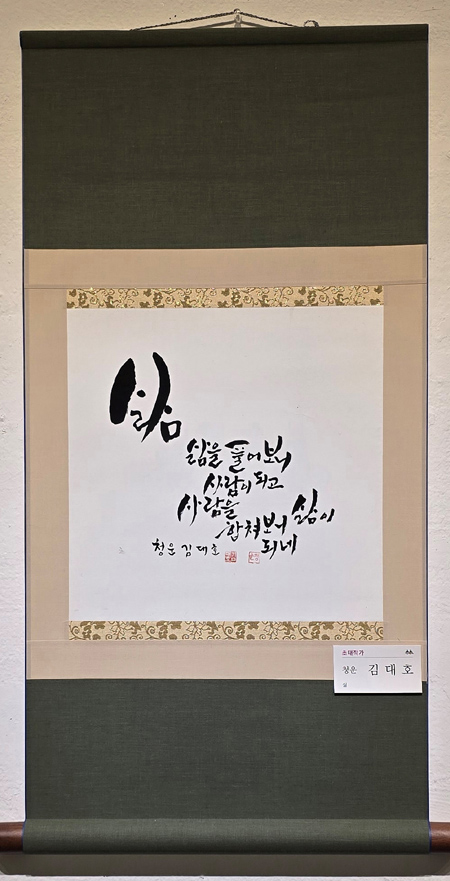 삶
삶을 풀어보니
사람이 되고
사람을
합쳐보니 삶이
되네
청운 김대호
초대작가
청운 김대호
삶